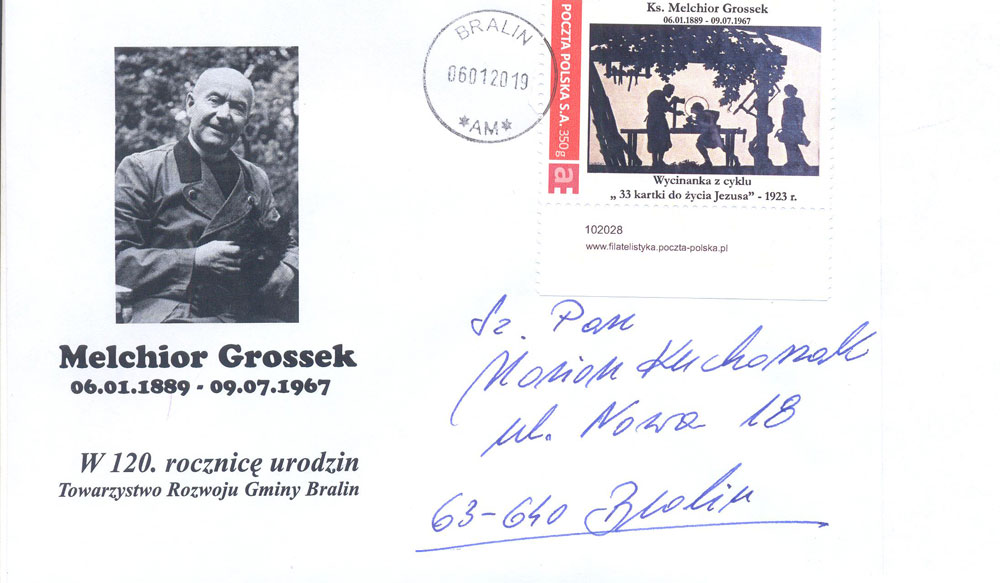 Melchior Grossek
06.01.1889 - 09.07.1967
W 120. rocznicę urodzin
Towarzystwo Rozwoju Gminy Bralin
BRALIN
06012019
*AM*
POCZTA POLSKA S.A. 350g
Ks. Melchior Grossek
06.01.1889 - 09.07.1967
Wycinanka z cyklu
„ 33 kartki do życia Jezusa” - 1923 r.
102028
www.filatelistyka.poczta-polska.pl
Sz. Pan
Marian Kucharzak
ul. Nowa 18
63-640 Bralin